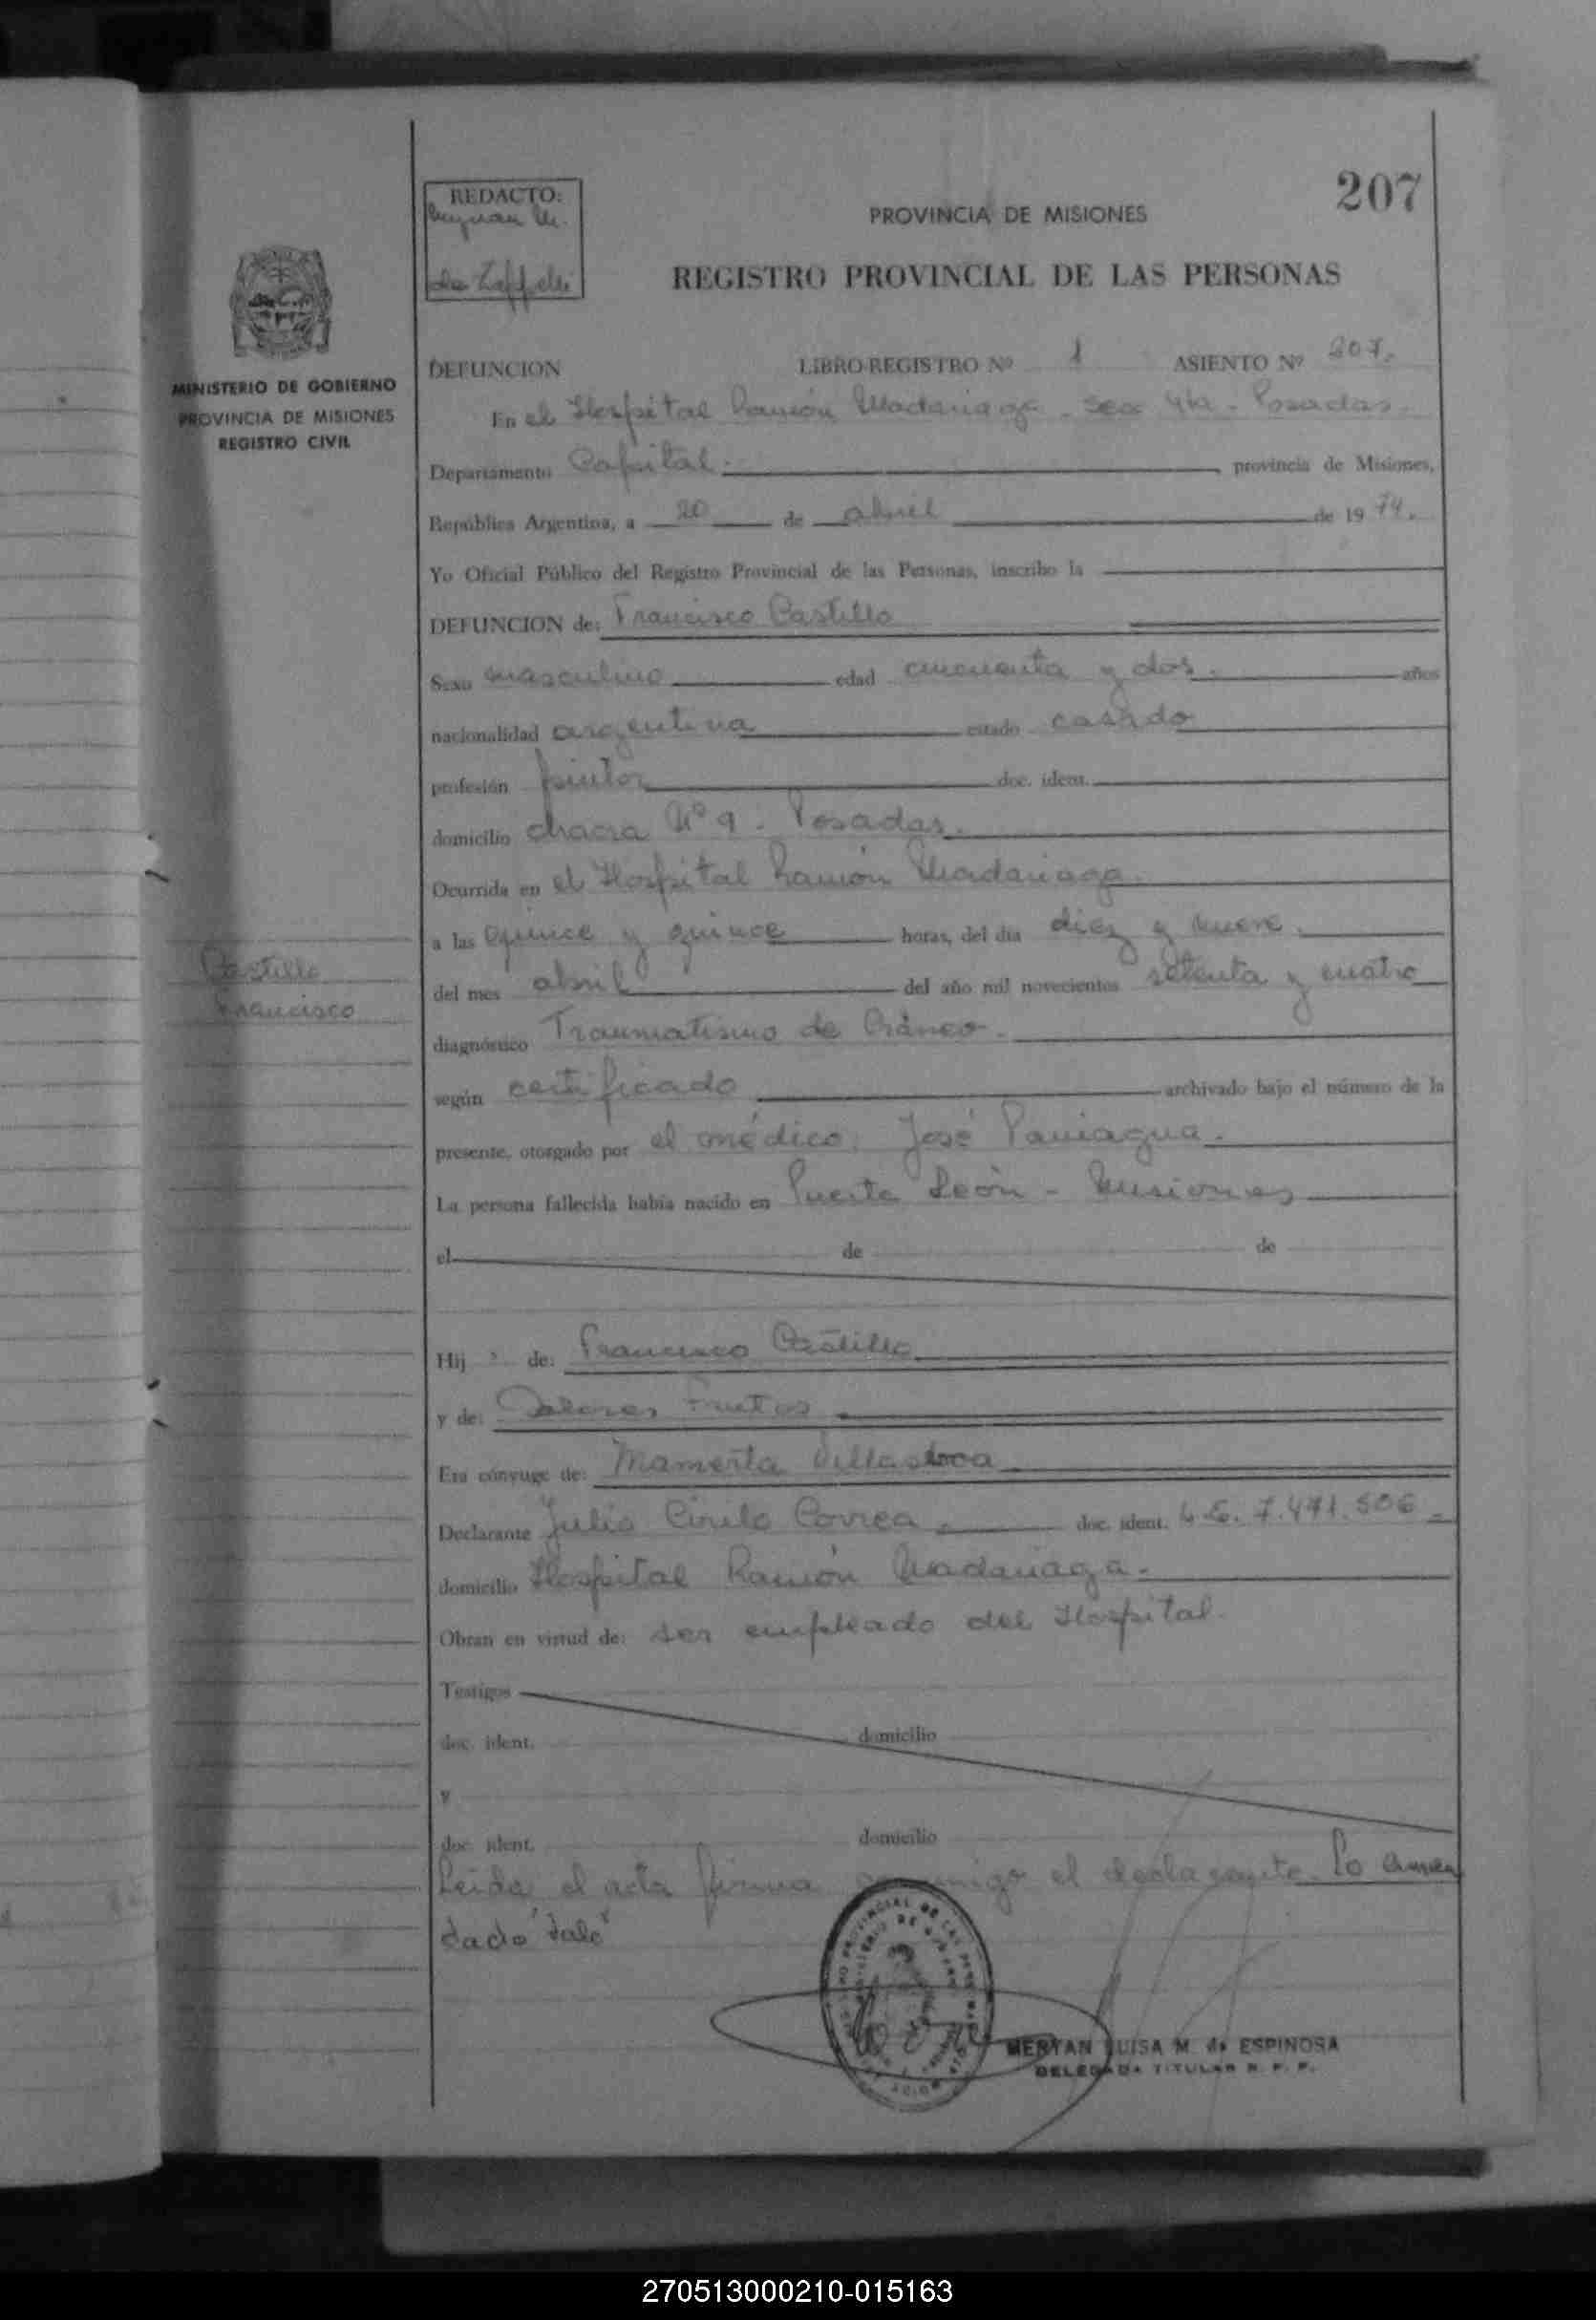 207
REDACTO:
de Zaffelli
PROVINCIA DE MISIONES
REGISTRO PROVINCIAL DE LAS PERSONAS
MINISTERIO DE GOBIERNO
PROVINCIA DE MISIONES
REGISTRO CIVIL
DEFUNCION LIBRO REGISTRO Nº 1 ASIENTO Nº 207.
En el Hospital Ramón Madariaga - Sec 4ta - Posadas.
Departamento Capital. provincia de Misiones,
República Argentina, a 20 de abril de 1974.
Yo Oficial Público del Registro Provincial de las Personas, inscribo la
DEFUNCION de: Francisco Castillo
Sexo masculino edad cincuenta y dos. años
nacionalidad argentina estado casado
profesión pintor doc. ident.
domicilio chacra Nº 9 - Posadas.
Ocurrida en el Hospital Ramón Madariaga.
a las quince y quince horas, del día diez y nueve.
Castillo
Francisco
del mes abril del año mil novecientos setenta y cuatro
diagnóstico Traumatismo de Cráneo.
según certificado archivado bajo el número de la
presente, otorgado por el médico. José Paniagua.
La persona fallecida había nacido en Puerto León - Misiones
el de de
Hijo de: Francisco Castillo
y de: Dolores Frutos
Era cónyuge de: Mamerta Villasboa
Declarante Julio Cirilo Correa. doc. ident. L.E. 7.471.506.
domicilio Hospital Ramón Madariaga.
Obran en virtud de: ser empleado del Hospital.
Testigos
doc. ident. domicilio
y
doc. ident. domicilio
Leida el acta firma conmigo el declarante. Lo enmen
dado "Vale"
MERYAN LUISA M. de ESPINOSA
DELEGADA TITULAR R. P. P.
270513000210-015163